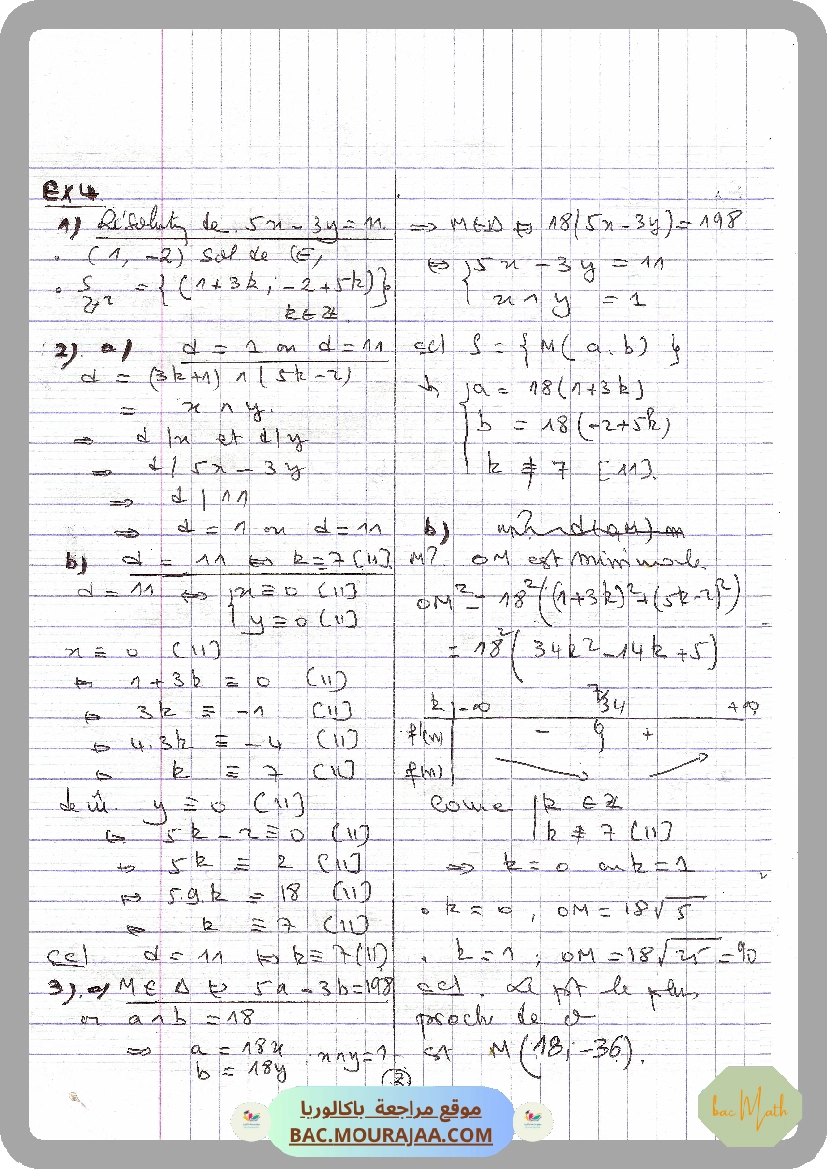 Ex 4
1) Résolution de 5x - 3y = 11.
• (1, -2) sol de (E)
• S_ℤ² = { (1+3k ; -2+5k) }
k ∈ ℤ
2) a) d = 1 ou d = 11
d = (3k+1) ∧ (5k-2)
= x ∧ y.
⇒ d | x et d | y
⇒ d | 5x - 3y
⇒ d | 11
⇒ d = 1 ou d = 11
b) d = 11 ⇔ k ≡ 7 [11].
d = 11 ⇔ { x ≡ 0 [11]
y ≡ 0 [11]
x ≡ 0 [11]
⇔ 1 + 3k ≡ 0 [11]
⇔ 3k ≡ -1 [11]
⇔ 4.3k ≡ -4 [11]
⇔ k ≡ 7 [11]
de m̂. y ≡ 0 [11]
⇔ 5k - 2 ≡ 0 [11]
⇔ 5k ≡ 2 [11]
⇔ 5.9.k ≡ 18 [11]
⇔ k ≡ 7 [11]
ccl d = 11 ⇔ k ≡ 7 [11]
3) a) M ∈ Δ ⇔ 5a - 3b = 198
or a ∧ b = 18
⇒ a = 18x ; x ∧ y = 1
b = 18y
⇒ M ∈ Δ ⇔ 18(5x - 3y) = 198
⇔ { 5x - 3y = 11
x ∧ y = 1
ccl S = { M(a, b) }
{ a = 18(1+3k)
b = 18(-2+5k)
k ≢ 7 [11].
b)
M? OM est minimale
OM² = 18²((1+3k)² + (5k-2)²)
= 18²(34k² - 14k + 5)
k -∞ 7/34 +∞
f'(x) - 0 +
f(x)
Come { k ∈ ℤ
k ≢ 7 [11]
⇒ k = 0 ou k = 1
• k = 0, OM = 18√5
• k = 1 ; OM = 18√25 = 90
ccl. Le pt le plus
proche de O
est M(18 ; -36).
2
موقع مراجعة باكالوريا
BAC.MOURAJAA.COM
bac Math